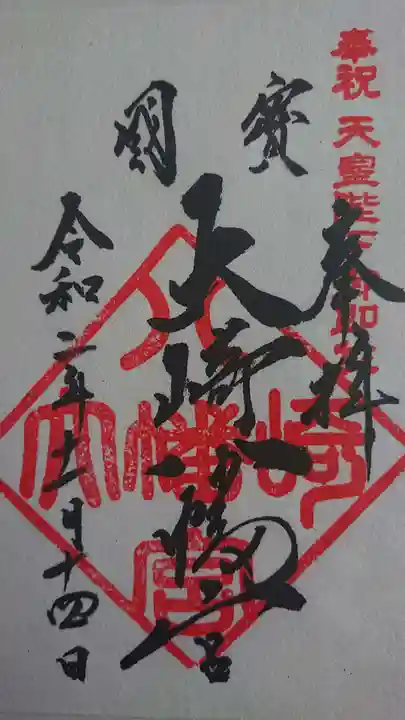 奉祝 天皇陛下御即位
奉拝
國寶
大崎八幡宮
令和二年十一月十四日
大崎八幡宮